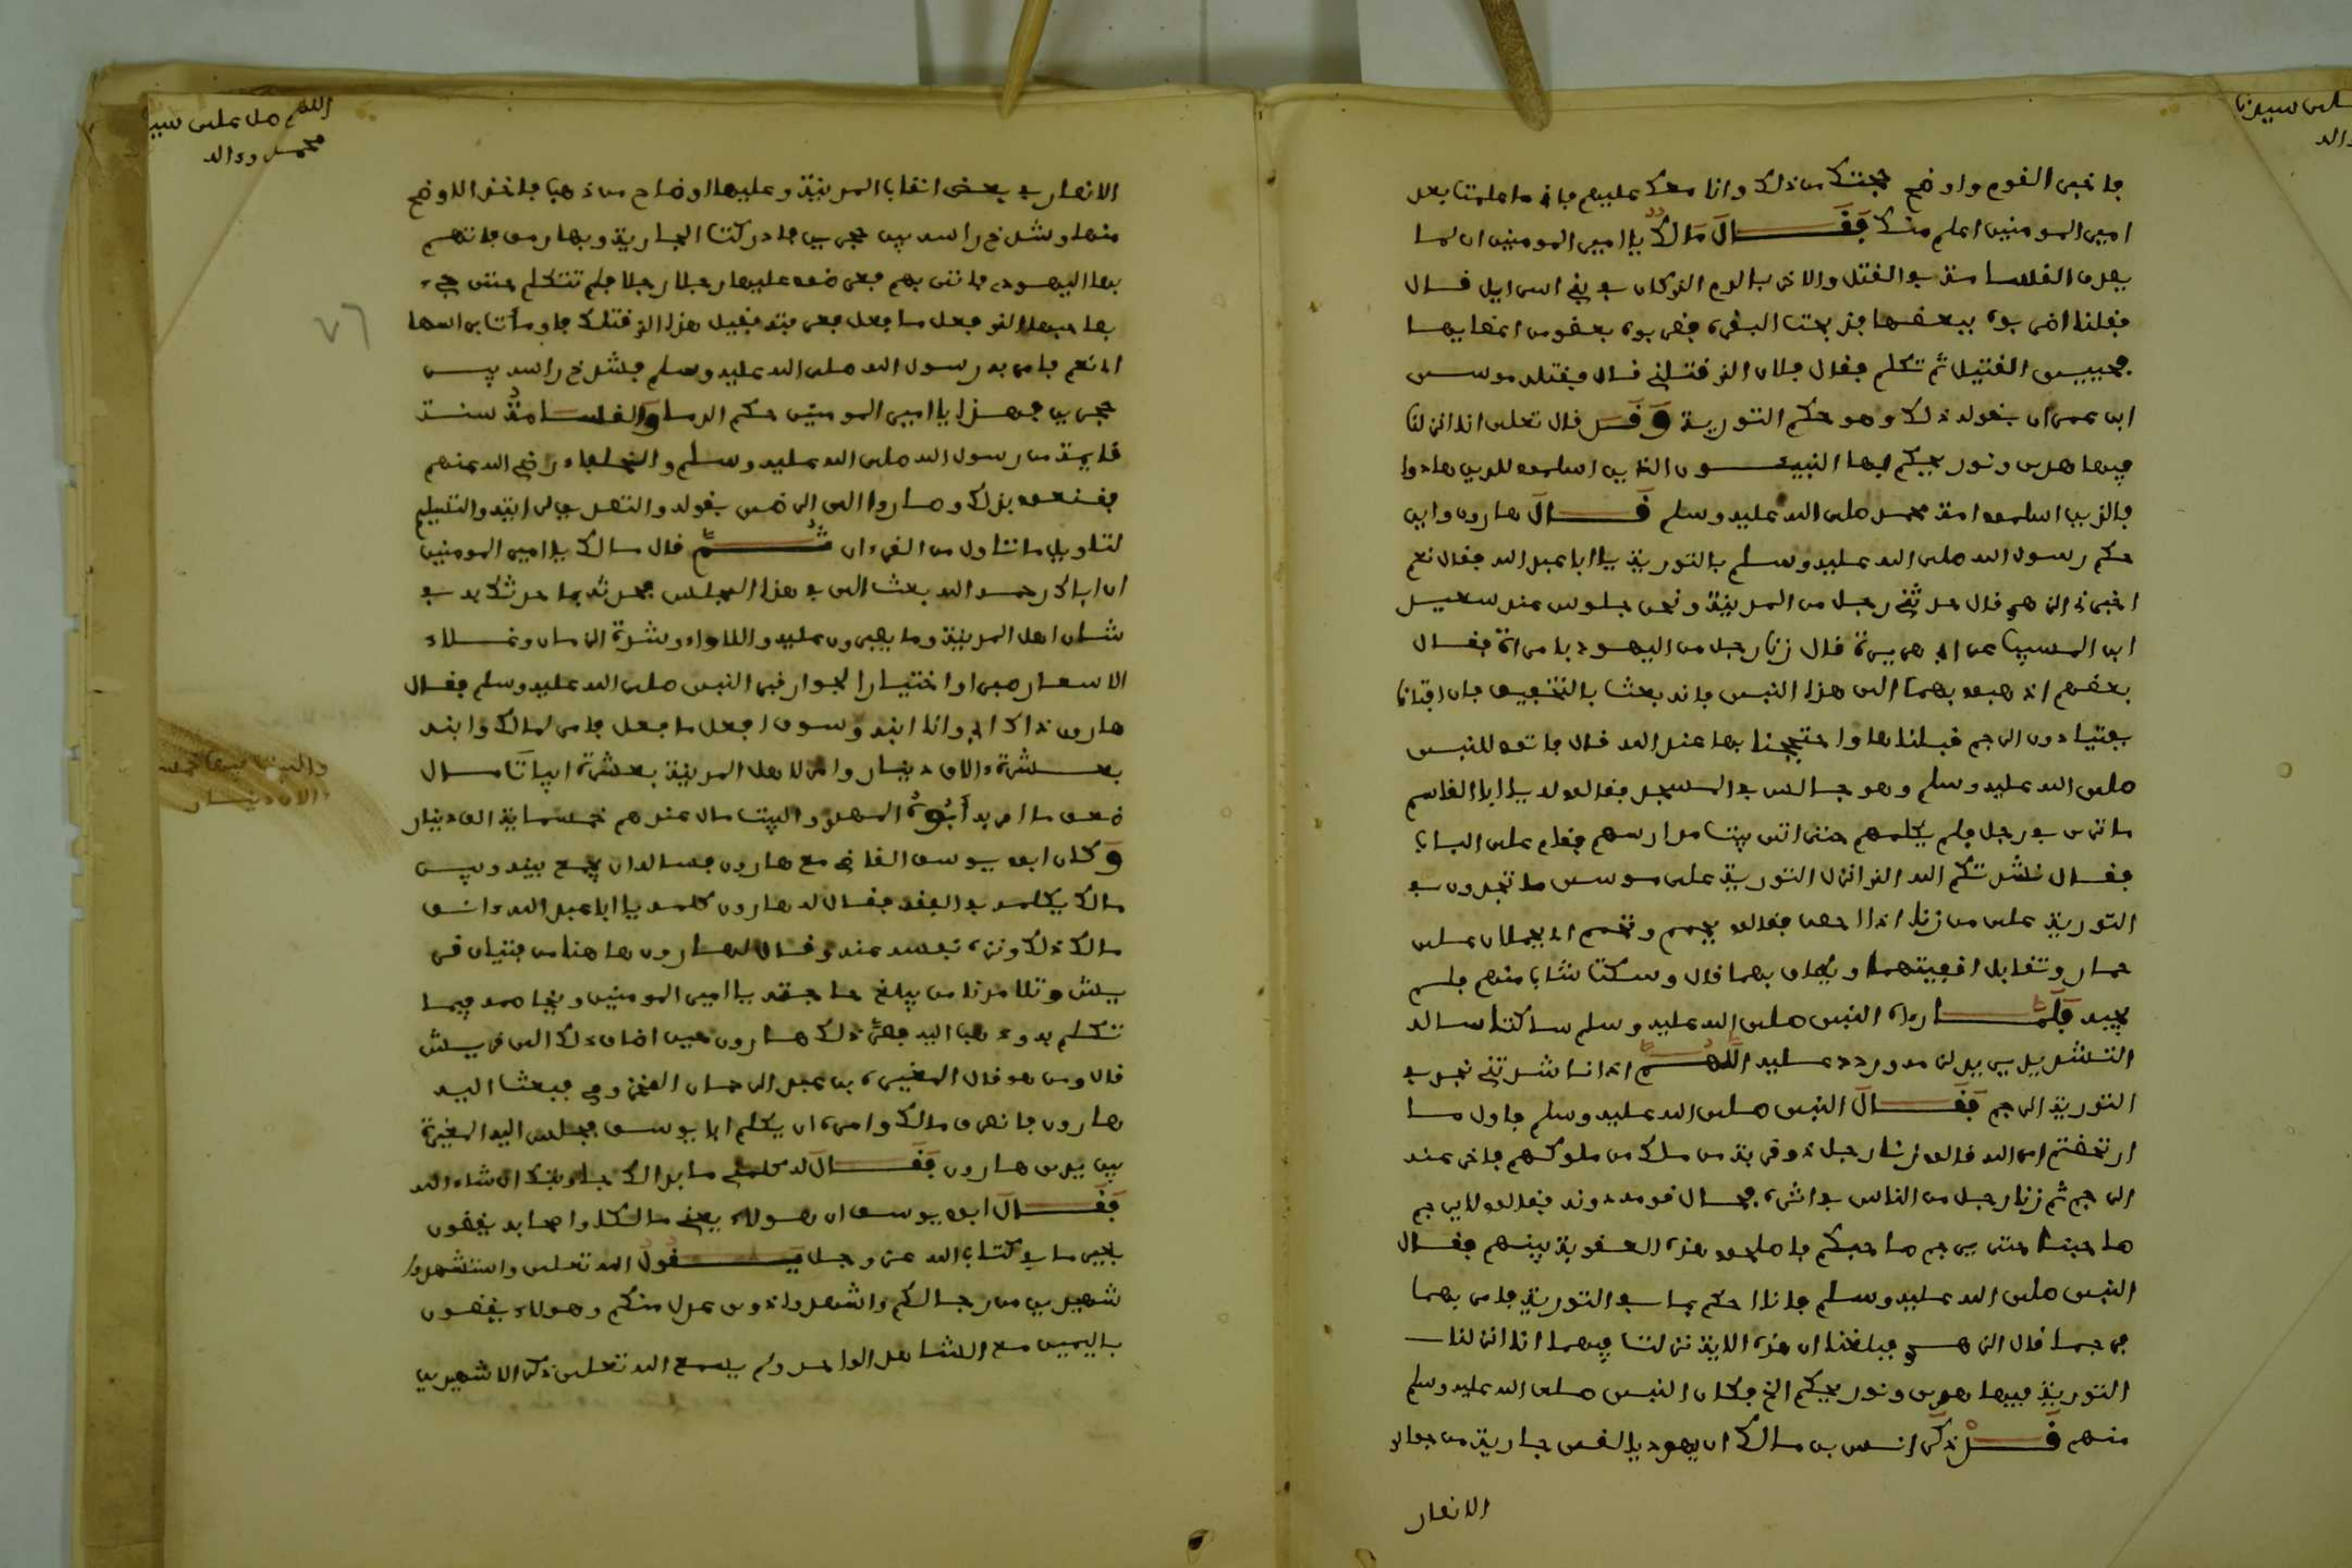 فاخبر القوم واوضح حجتك من ذلك وانا معك عليهم فانه ما علمت بعد
امير المومنين اعلم منك فَقَــالَ مَالك يا امير المومنين ان مما
يعرف القسامة في القتل والاخذ بالدم الذي كان في بني اسرايل قال
فقلنا اضربوه ببعضها فذبحت البقرة فضربوه بعضو من اعضايها
فحييى القتيل ثم تكلم فقال فلان الذي قتلني قال فقتله موسى
ابن عمران بقوله ذلك وهو حكم التورية وَقَــد قال تعلى انا انزلنا
فيها هدى ونور يحكم بها النبيــون الذين اسلموا للذين هادوا
فالذين اسلموا امة محمد صلى الله عليه وسلم قَــالَ هارون واين
حكم رسول الله صلى الله عليه وسلم بالتورية يا ابا عبد الله فقال نعم
اخبرني الزهري قال حدثني رجل من المدينة ونحن جلوس عند سعيد
ابن المسيب عن ابي هريرة قال زنا رجل من اليهود بامراة فقال
بعضهم اذهبوا بهما الى هذا النبي فانه بعث بالتخفيف فان افتانا
بفتيا دون الرجم قبلناها واحتججنا بها عند الله قال فاتوا للنبي
صلى الله عليه وسلم وهو جالس في المسجد فقالوا له يا ابا القاسم
ما ترى في رجل فلم يكلمهم حتى اتى بيت مدارسهم فقام على الباب
فقال نشدتكم الله الذي انزل التورية على موسى ما تجدون في
التورية على من زنا اذا احصن فقالوا يحمم ونحمم ان يحملان على
حمار وتقابل اقفيتهما ويطاف بهما قال وسكت شاب منهم فلم
يجبه فَلَمَّــا رءاه النبي صلى الله عليه وسلم ساكتا سالـه
التورية الرجم فَقَــالَ النبي صلى الله عليه وسلم فاول ما
ارتخصتم امر الله قالوا زنا رجل ذو قرابة من ملك من ملوكهم فاخر عنه
الرجم ثم زنا رجل من الناس في اثره فحال قومه دونه فقالوا لا يرجم
صاحبنا حتى يرجم صاحبكم فاصلحوا هذه العقوبة بينهم فقال
النبي صلى الله عليه وسلم فانا احكم بما في التورية فامر بهما
فرجما قال الزهري فبلغنا ان هذه الاية نزلت فيهما انا انزلنا
التورية فيها هدى ونور يحكم الخ فكان النبي صلى الله عليه وسلم
منهم قَــدْ ذكر انس بن مالك ان يهوديا لقي جارية من جوار
الانصار
اللهم صل على سيدنا
محمد وءاله
الانصار في بعض انقاب المدينة وعليها اوضاح من ذهب فاخذ الاوضح
منها وشدخ راسه بين حجرين فادركت الجارية وبها رمق فاتهم
بها اليهود فاتى بهم فعرضوا عليها رجلا رجلا فلم تتكلم حتى جيء
بصاحبها الذي فعل ما فعل فعرفته فقيل هذا الذي قتلك فاومات براسها
ان نعم فامر به رسول الله صلى الله عليه وسلم فشدخ راسه بيــن
حجرين فهذا يا امير المومنين حكم الدماء والقسامةُ سنة
قايمة من رسول الله صلى الله عليه وسلم والخلفاء رضي الله عنهم
فقنعوا بذلك وصاروا الى الرضى بقوله والتصديق لروايته والتسليم
لتاويل ما تناول من القرءان ثُــمَّ قال مالك يا امير المومنين
ان اباك رحمه الله بعث الي في هذا المجلس فحدثته بما حدثتك به في
شان اهل المدينة وما يصبرون عليه واللاواء وشدة الزمان وغلاء
الاسعار صبرا واختيارا لجوار قبر النبي صلى الله عليه وسلم فقال
هارون ذاك ابي وانا ابنه وسوف افعل ما فعل فامر لمالك وابنه
بعــشرة ءالاف دينار وامر لاهل المدينة بعشرة ابيات مال
ضعف ما امر به أَبُوهُ المهدي والبيت مال عندهم خمسماية الف دينار
وَكان ابو يوسف القاضي مع هارون فساله ان يجمع بينه وبين
مالك يكلمه في الفقه فقال له هارون كلمه يا ابا عبد الله فانف
مالك ذلك ونزه نفسه عنه وقال لهارون هاهنا من فتيان قر
يش وتلامذنا من يبلغ حاجته يا امير المومنين ويخاصمه فيما
تكلم به وذهب اليه فسر ذلك هارون حين اضاف ذلك الى قريش
قال ومن هو قال المغيرة بن عبد الرحمان المخزومي فبعث اليه
هارون فانصرف مالك وامره ان يكلم ابا يوسف فجلس اليه المغيرة
بين يدي هارون فَقَــالَ له كلمني ما بدا لك جاوبتك ان شاء الله
فَقَــالَ ابو يوسف ان هولاء يعني مالكا واصحابه يقضون
بغير ما في كتاب الله عز وجل يَــقُولُ الله تعلى واستشهدوا
شهيدين من رجالكم واشهدوا ذوى عدل منكم وهولاء يقضون
باليمين مع الشاهد الواحد ولم يسمع الله تعلى ذكر الا شهيدين
٧٦